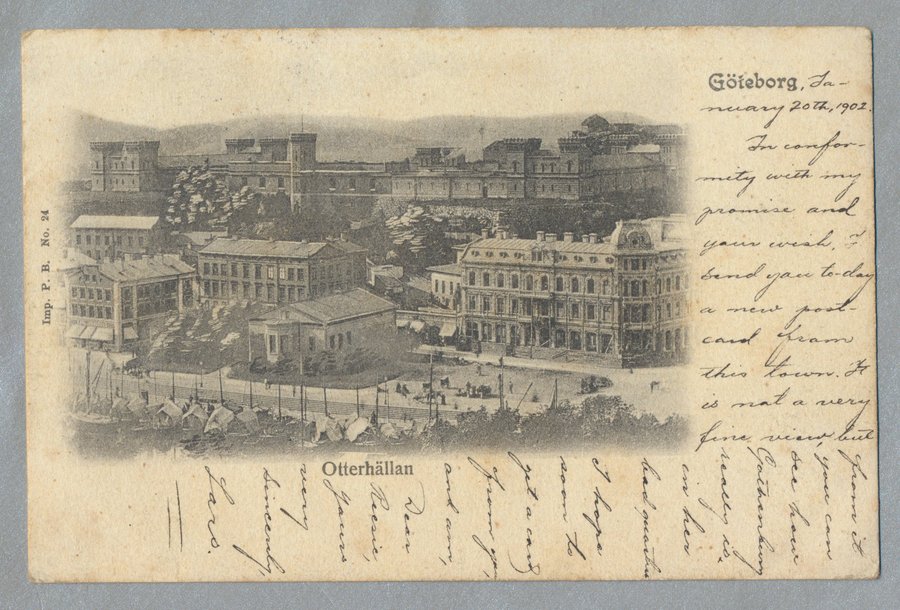 Imp. P. B. No. 24
Göteborg, Ja-
nuary 20th, 1902.
In confor-
mity with my
promise and
your wish, I
send you to-day
a new post-
card from
this town. It
is not a very
fine view, but
from it
you can
se how
Gothenburg
really is
in her
bad quarters
I hope
soon to
get a card
from you,
and am,
Dear
Yours
very
sincerely,
Lars.
Otterhällan